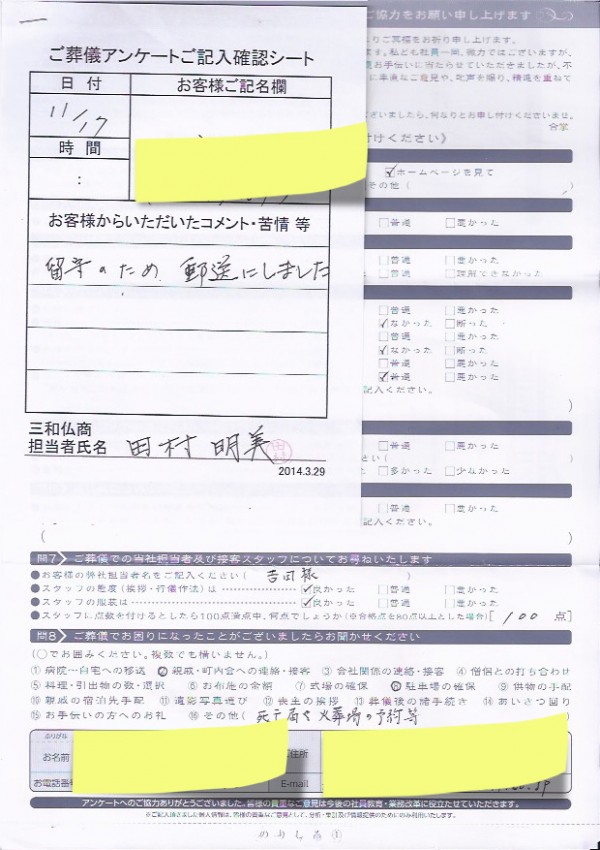 ご葬儀アンケートご記入確認シート
日付 お客様ご記名欄
11/17
時間
:
お客様からいただいたコメント・苦情 等
留守のため 郵送にしました
三和仏商
担当者氏名 田村 明美
2014.3.29
ご協力をお願い申し上げます
りご冥福をお祈り申し上げます。
す。私ども社員一同、微力ではございますが、
お手伝いに当たらせていただきましたが、不
に率直なご意見や、叱声を賜り、精進を重ねて
ございましたら、何なりとお申し付けくださいませ。
合掌
付けください》
ホームページを見て
その他(
普通 悪かった
普通 悪かった
普通 理解できなかった
普通 悪かった
なかった 断った
普通 悪かった
なかった 断った
普通 悪かった
記入ください。
)
普通 悪かった
さい( )
多かった 少なかった
普通 悪かった
記入ください。
( )
問7 ご葬儀での当社担当者及び接客スタッフについてお尋ねいたします
●お客様の弊社担当者名をご記入ください( 吉田様 )
●スタッフの態度(挨拶・行儀作法)は 良かった 普通 悪かった
●スタッフの服装は 良かった 普通 悪かった
●スタッフに点数を付けるとしたら100点満点中、何点でしょうか(※合格点を80点以上とした場合)[ 100 点]
問8 ご葬儀でお困りになったことがございましたらお聞かせください
(○でお囲みください。複数でも構いません。)
①病院〜自宅への移送 ②親戚・町内会への連絡・接客 ③会社関係の連絡・接客 ④僧侶との打ち合わせ
⑤料理・引出物の数・選択 ⑥お布施の金額 ⑦式場の確保 ⑧駐車場の確保 ⑨供物の手配
⑩親戚の宿泊先手配 ⑪遺影写真選び ⑫喪主の挨拶 ⑬葬儀後の諸手続き ⑭あいさつ回り
⑮お手伝いの方へのお礼 ⑯その他( 死亡届や火葬場の予約等 )
ふりがな
お名前 ご住所
お電話番号 E-mail
アンケートへのご協力ありがとうございました。皆様の貴重なご意見は今後の社員教育・業務改革に役立たせていただきます。
のりしろ①